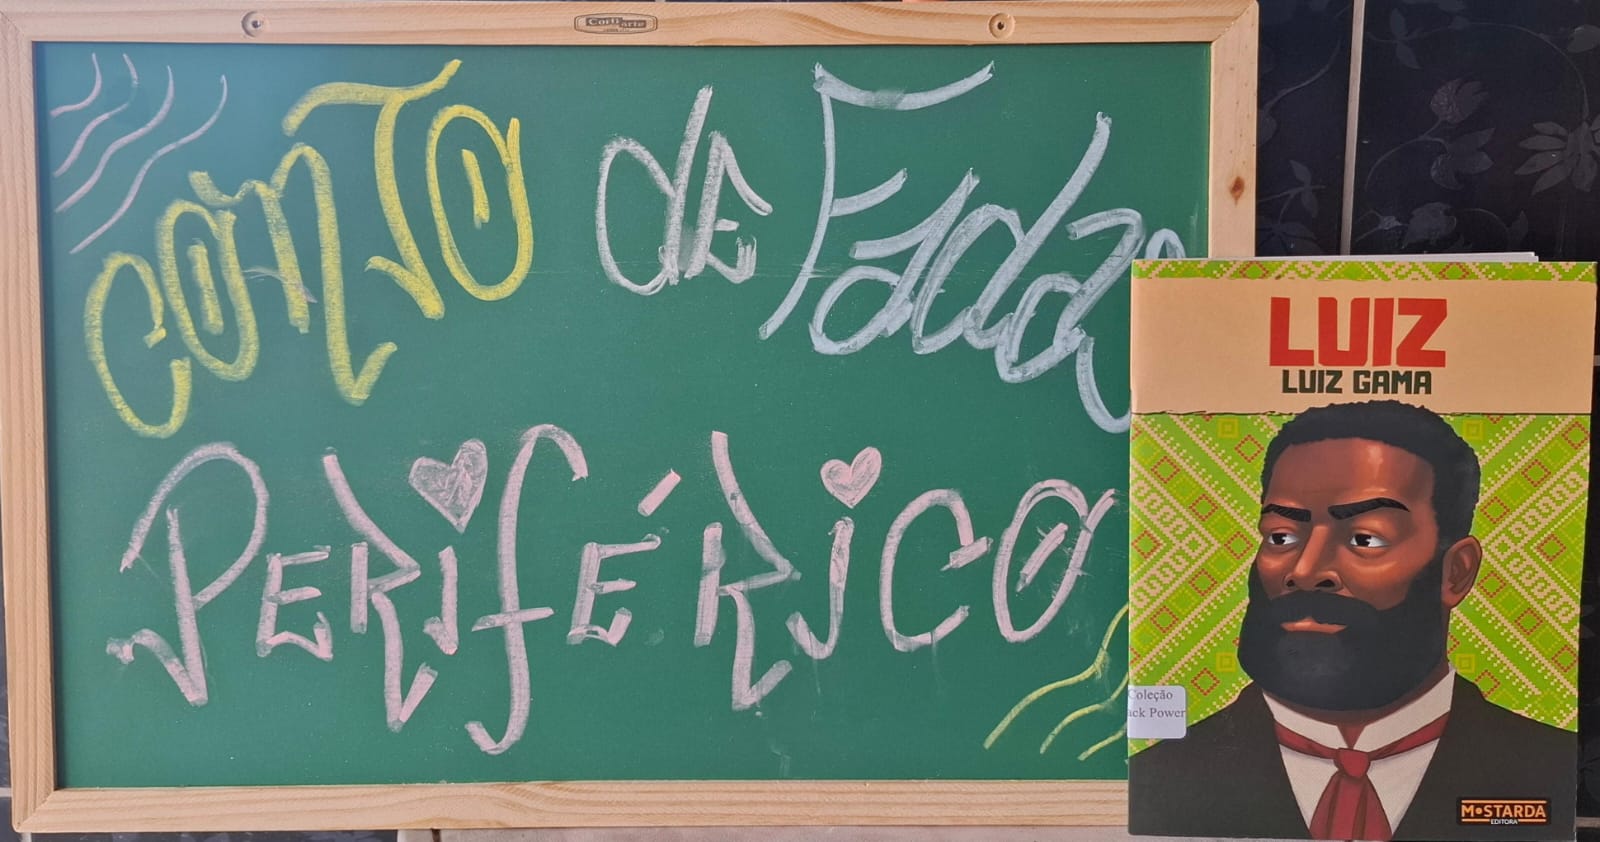 Corti arte
CONTO de Fadas
PERIFÉRICO
LUIZ
LUIZ GAMA
Coleção
ack Power
MOSTARDA
EDITORA